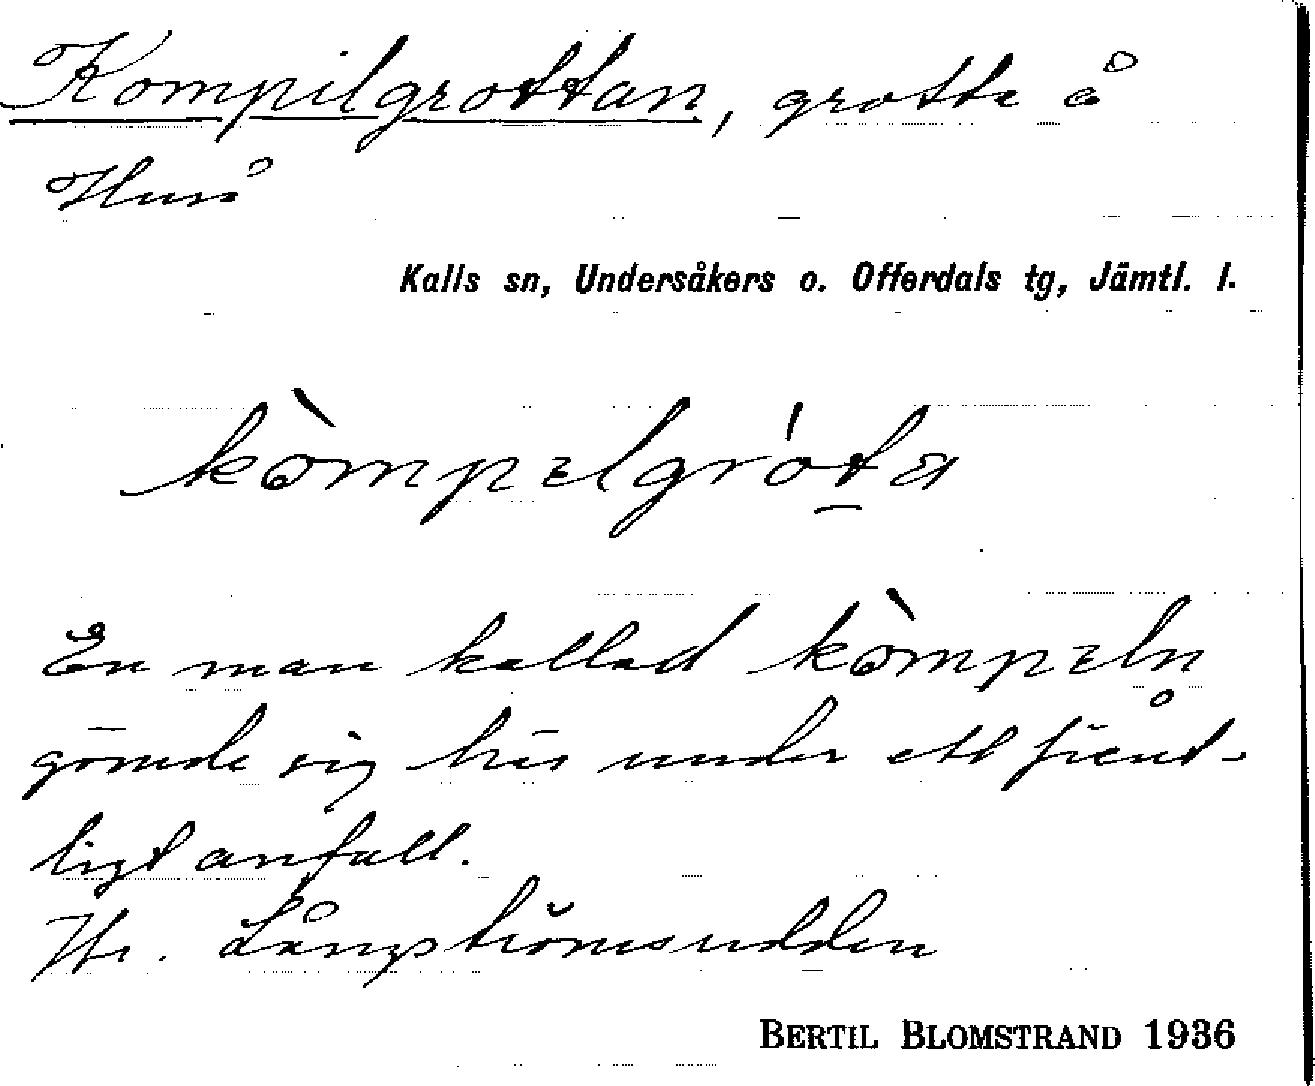 Kompilgrottan, grotta å
Huså
Kalls sn, Undersåkers o. Offerdals tg, Jämtl. l.
kòmpelgróta
En man kallad kòmpeln
gömde sig här under ett fient-
ligt anfall.
Hr. Långströmsudden
BERTIL BLOMSTRAND 1936